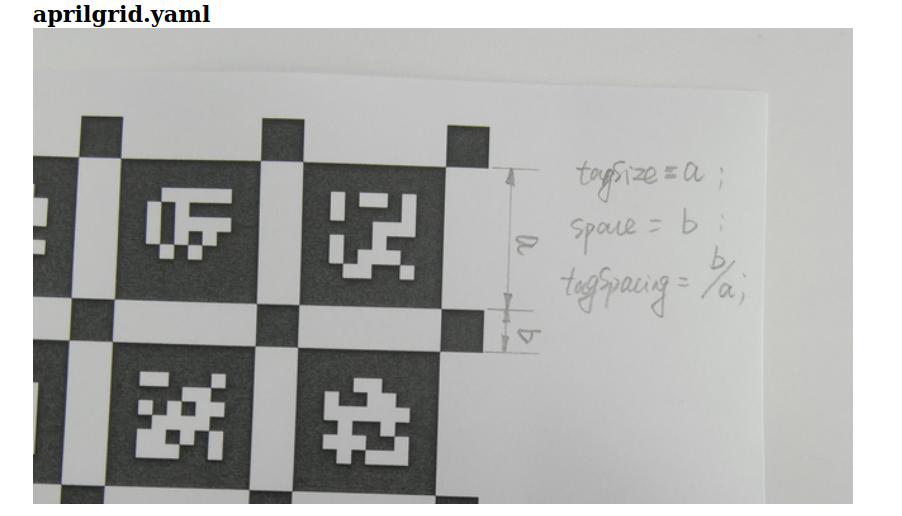 aprilgrid.yaml
tagSize = a ;
space = b ;
tagSpacing = b/a;
a
b